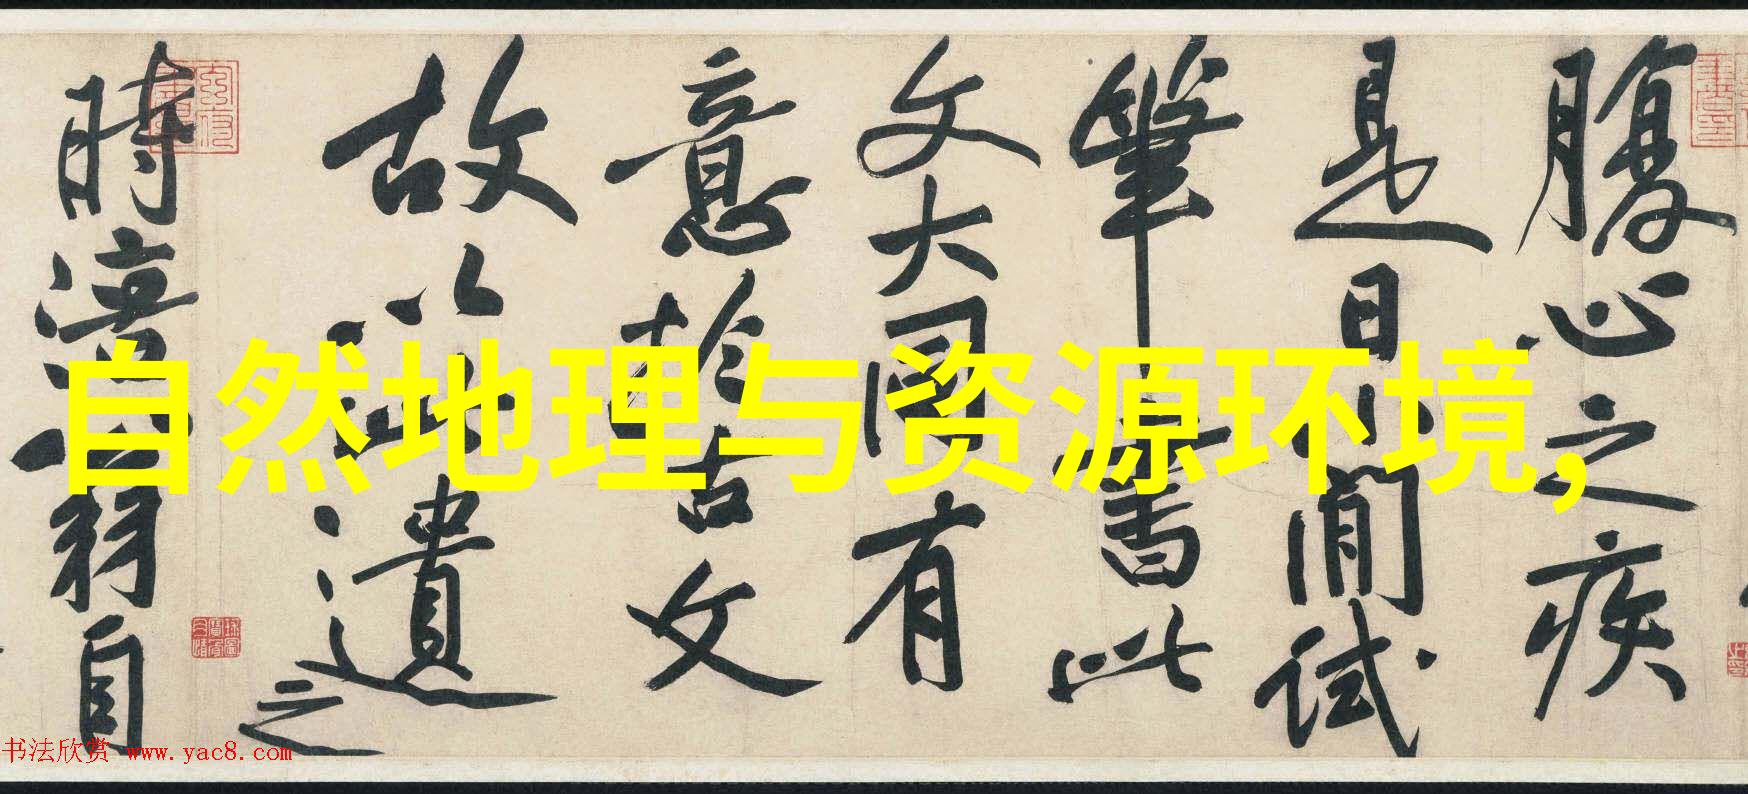 腹心之疾
是日閒試
筆書此
文大同有
意於古文
故以此遺之
時涪翁自
自然地理与资源环境,
书法欣赏 www.yac8.com